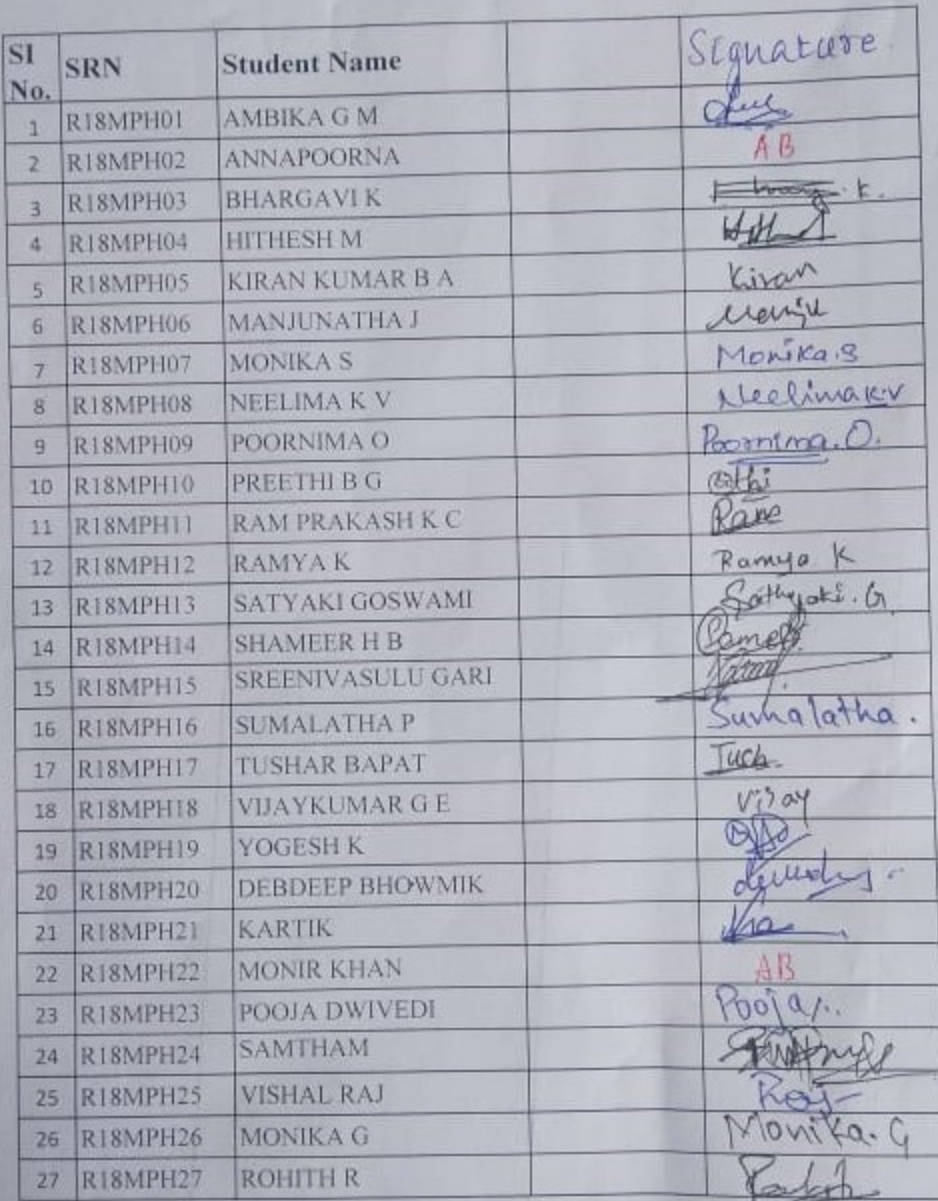 SI No. SRN Student Name Signature
1 R18MPH01 AMBIKA G M
2 R18MPH02 ANNAPOORNA AB
3 R18MPH03 BHARGAVI K K.
4 R18MPH04 HITHESH M
5 R18MPH05 KIRAN KUMAR B A Kiran
6 R18MPH06 MANJUNATHA J Manju
7 R18MPH07 MONIKA S Monika.S
8 R18MPH08 NEELIMA K V Neelima K.V
9 R18MPH09 POORNIMA O Poornima.O.
10 R18MPH10 PREETHI B G
11 R18MPH11 RAM PRAKASH K C Ram
12 R18MPH12 RAMYA K Ramya K
13 R18MPH13 SATYAKI GOSWAMI Sathyaki.G.
14 R18MPH14 SHAMEER H B
15 R18MPH15 SREENIVASULU GARI
16 R18MPH16 SUMALATHA P Sumalatha.
17 R18MPH17 TUSHAR BAPAT
18 R18MPH18 VIJAYKUMAR G E Vijay
19 R18MPH19 YOGESH K
20 R18MPH20 DEBDEEP BHOWMIK
21 R18MPH21 KARTIK
22 R18MPH22 MONIR KHAN AB
23 R18MPH23 POOJA DWIVEDI Pooja
24 R18MPH24 SAMTHAM
25 R18MPH25 VISHAL RAJ Raj
26 R18MPH26 MONIKA G Monika. G
27 R18MPH27 ROHITH R